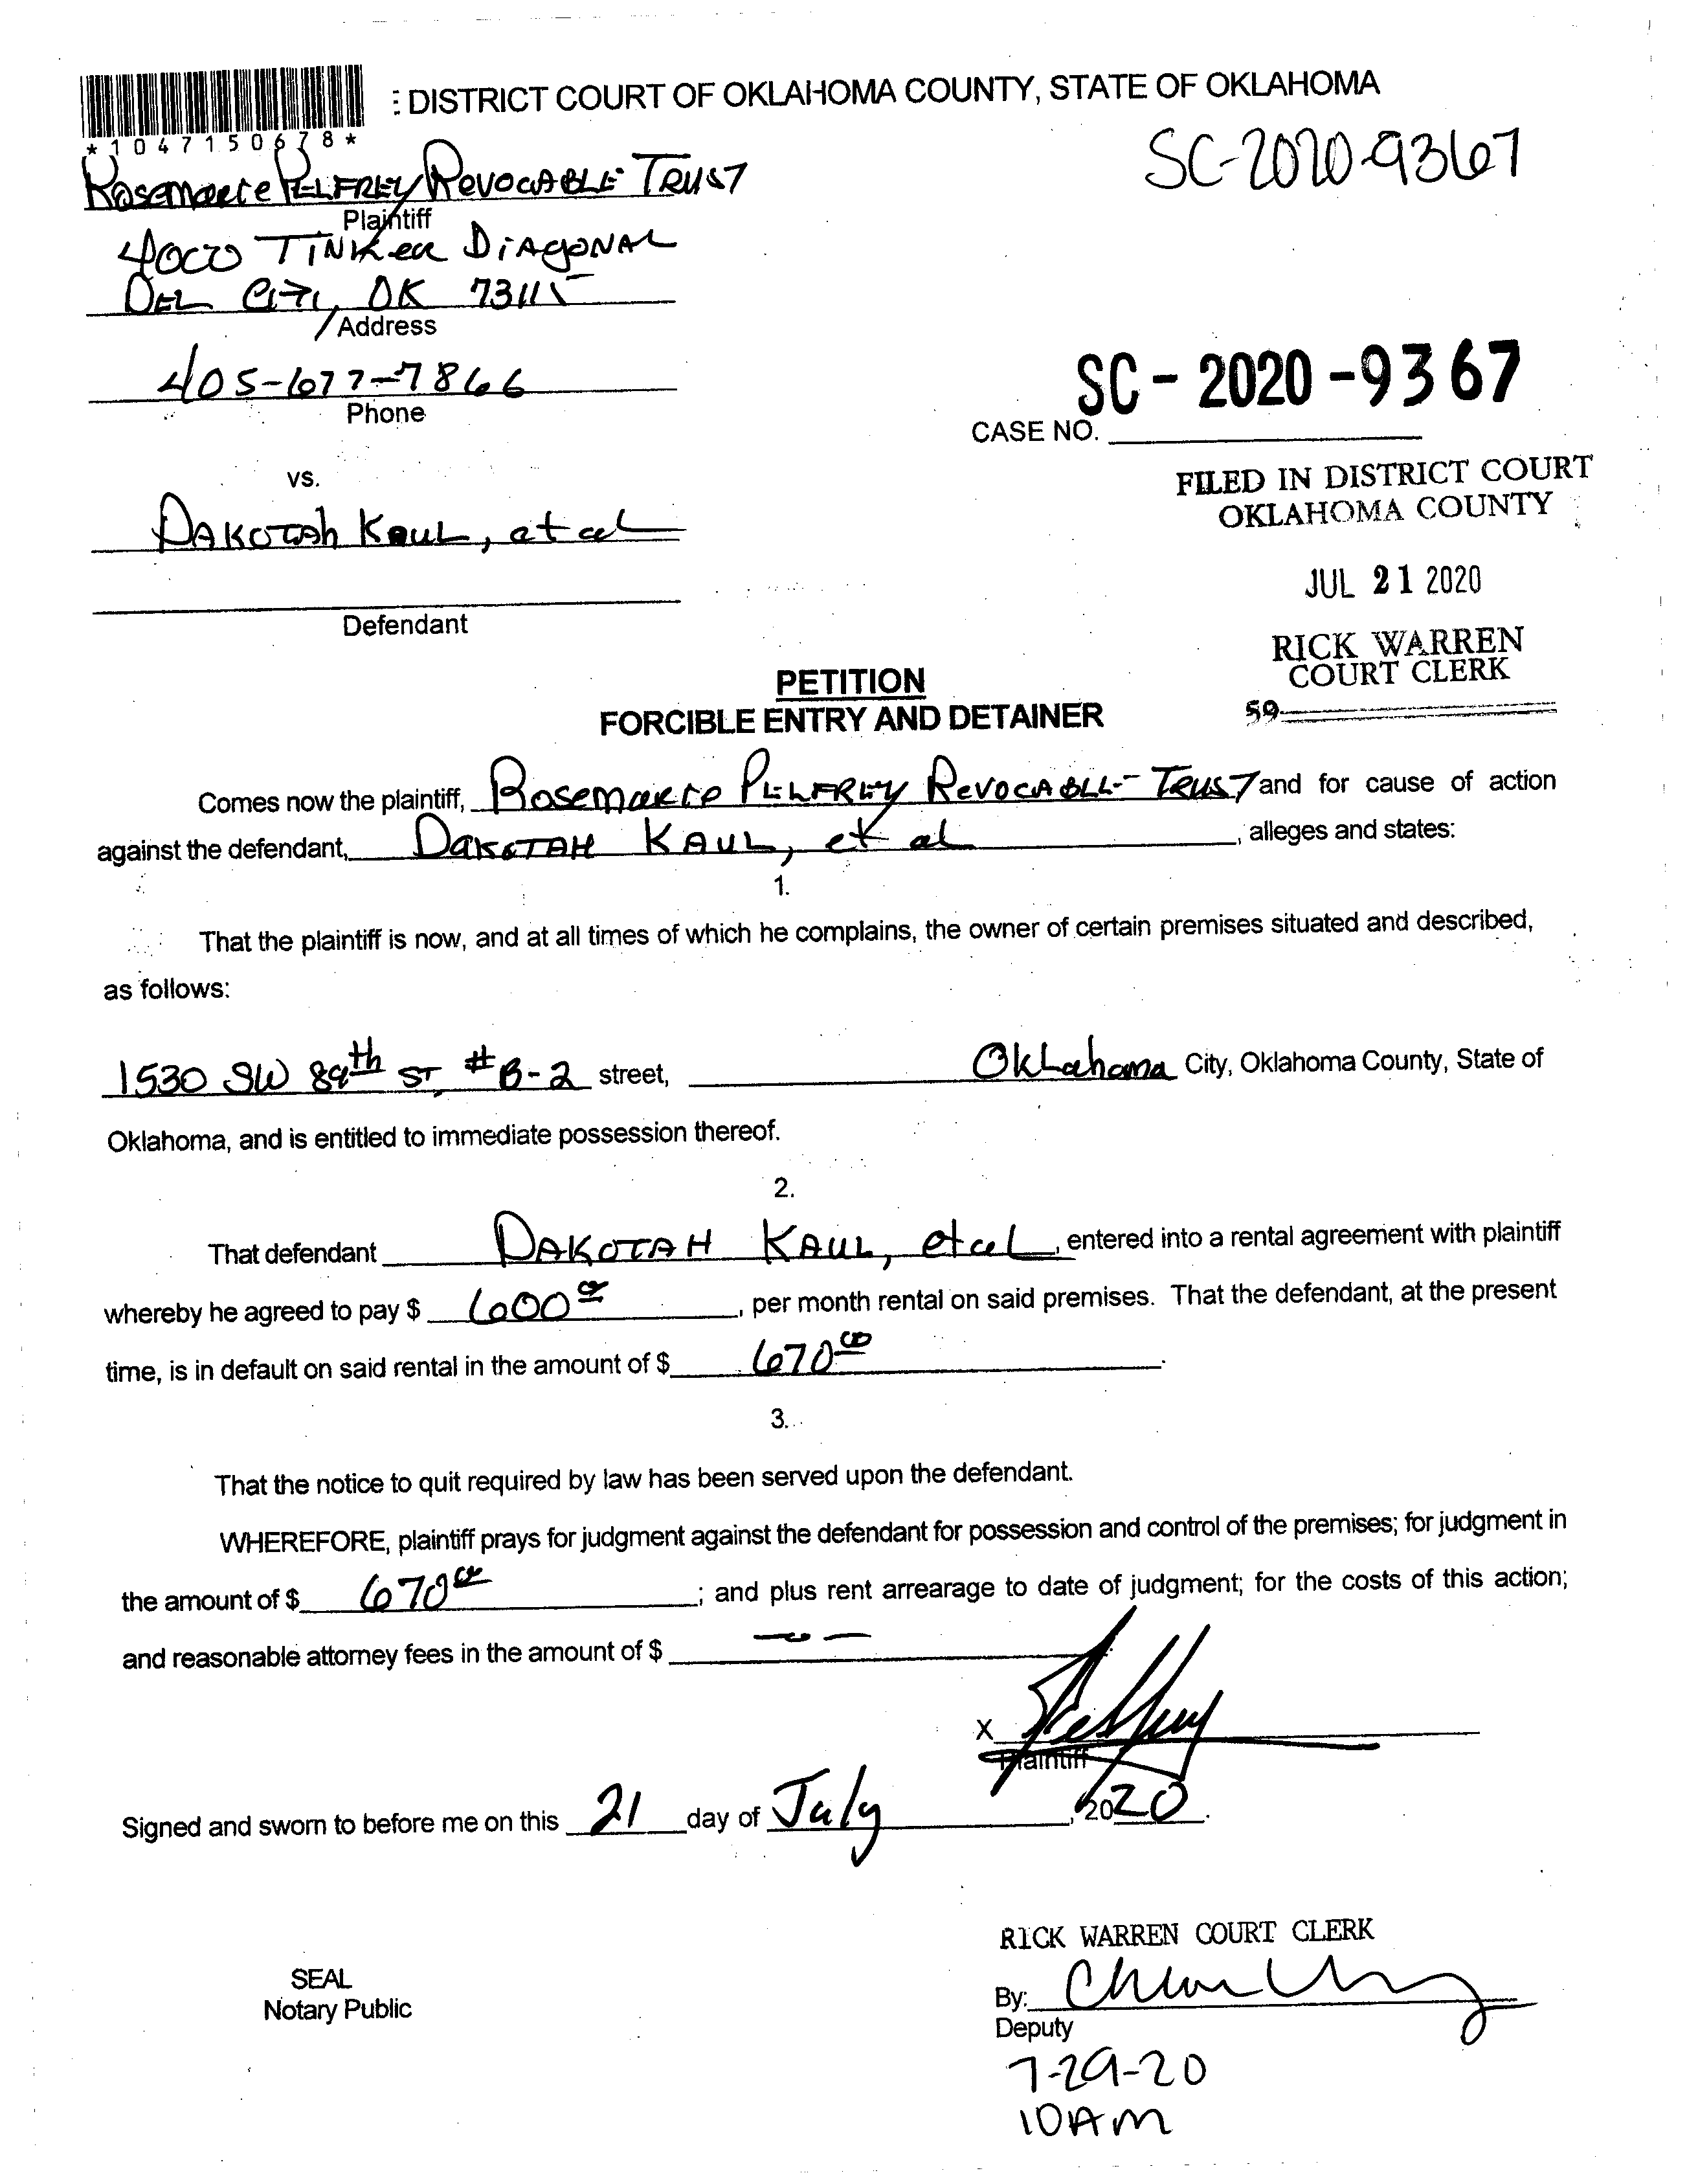 : DISTRICT COURT OF OKLAHOMA COUNTY, STATE OF OKLAHOMA
*1047150678*
SC-2020-9367
Rosemarie PELFREY REVOCABLE TRUST
Plaintiff
4000 TINKER DIAGONAL
DEL CITY, OK 73115
Address
405-677-7866
Phone
SC-2020-9367
CASE NO.
FILED IN DISTRICT COURT
OKLAHOMA COUNTY
vs.
DAKOTAh KAUL, et al
JUL 21 2020
Defendant
RICK WARREN
COURT CLERK
59
PETITION
FORCIBLE ENTRY AND DETAINER
Comes now the plaintiff, Rosemarie PELFREY REVOCABLE TRUST and for cause of action
against the defendant, DAKOTAH KAUL, et al, alleges and states:
1.
That the plaintiff is now, and at all times of which he complains, the owner of certain premises situated and described,
as follows:
1530 SW 89th ST, #B-2 street, Oklahoma City, Oklahoma County, State of
Oklahoma, and is entitled to immediate possession thereof.
2.
That defendant DAKOTAH KAUL, et al, entered into a rental agreement with plaintiff
whereby he agreed to pay $ 600 00, per month rental on said premises. That the defendant, at the present
time, is in default on said rental in the amount of $ 670 00.
3.
That the notice to quit required by law has been served upon the defendant.
WHEREFORE, plaintiff prays for judgment against the defendant for possession and control of the premises; for judgment in
the amount of $ 670 00; and plus rent arrearage to date of judgment; for the costs of this action;
and reasonable attorney fees in the amount of $ -0-
X
Plaintiff
Signed and sworn to before me on this 21 day of July, 2020.
RICK WARREN COURT CLERK
SEAL
Notary Public
By:
Deputy
7-29-20
10AM